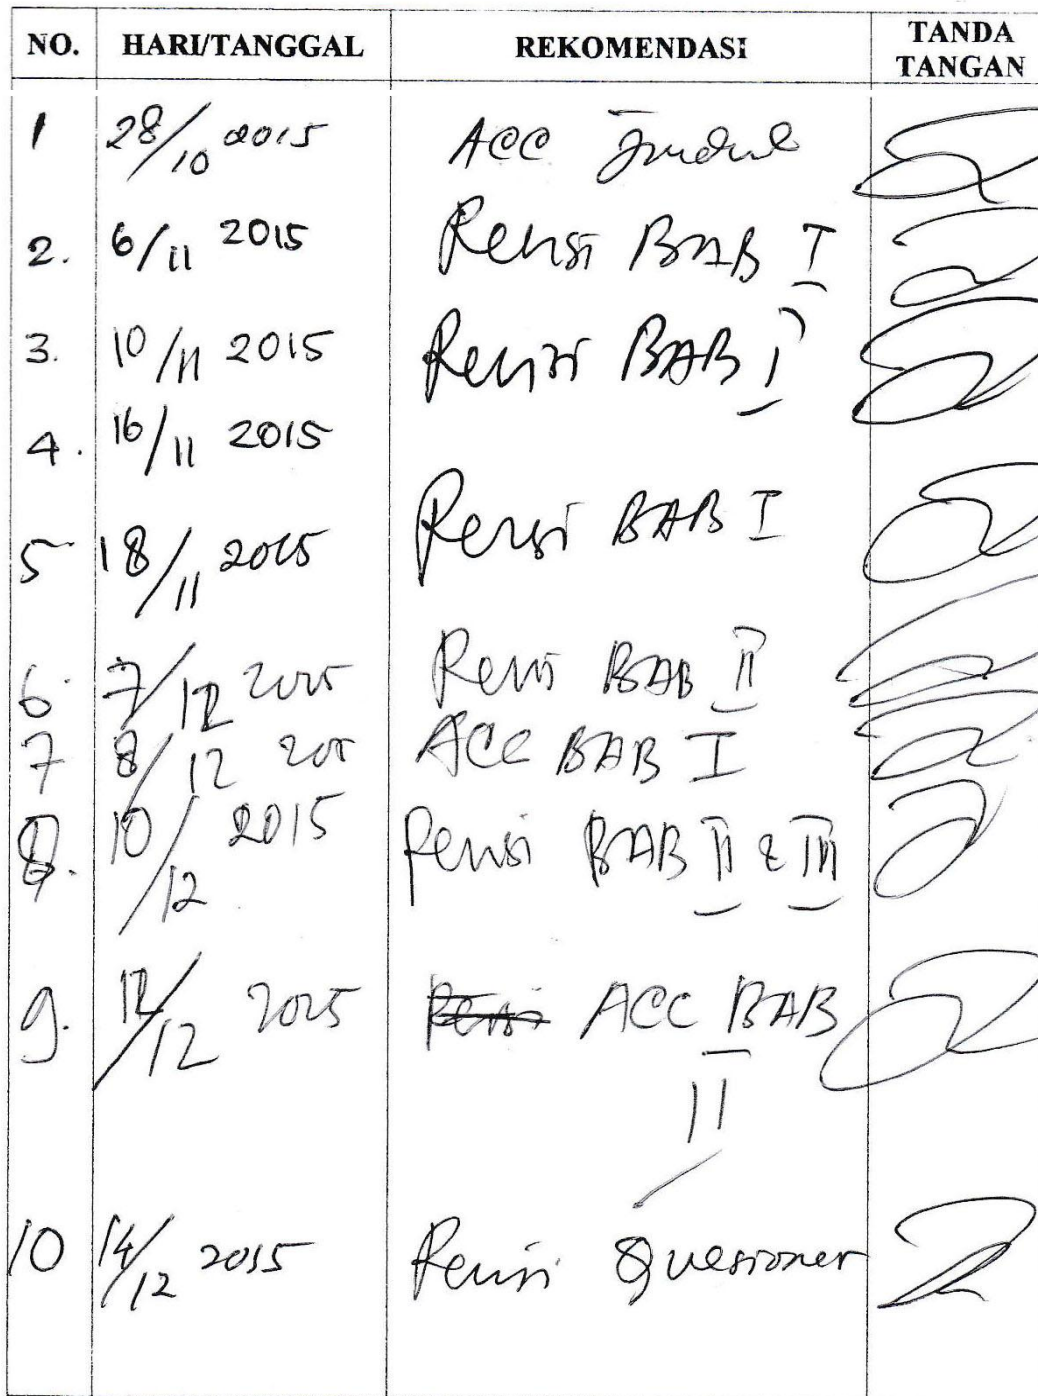 NO. HARI/TANGGAL REKOMENDASI TANDA TANGAN
1 28/10 2015 ACC Judul
2. 6/11 2015 Revisi BAB I
3. 10/11 2015 Revisi BAB I
4. 16/11 2015
5 18/11 2015 Revisi BAB I
6. 7/12 2015 Revisi BAB II
7 8/12 201 ACC BAB I
8. 10/12 2015 Revisi BAB II & III
9. 12/12 2015 Revisi ACC BAB
II
10 14/12 2015 Revisi Quesioner